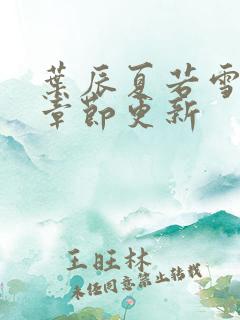 葉辰夏若雪
章節更新
王旺林
未经同意禁止转载